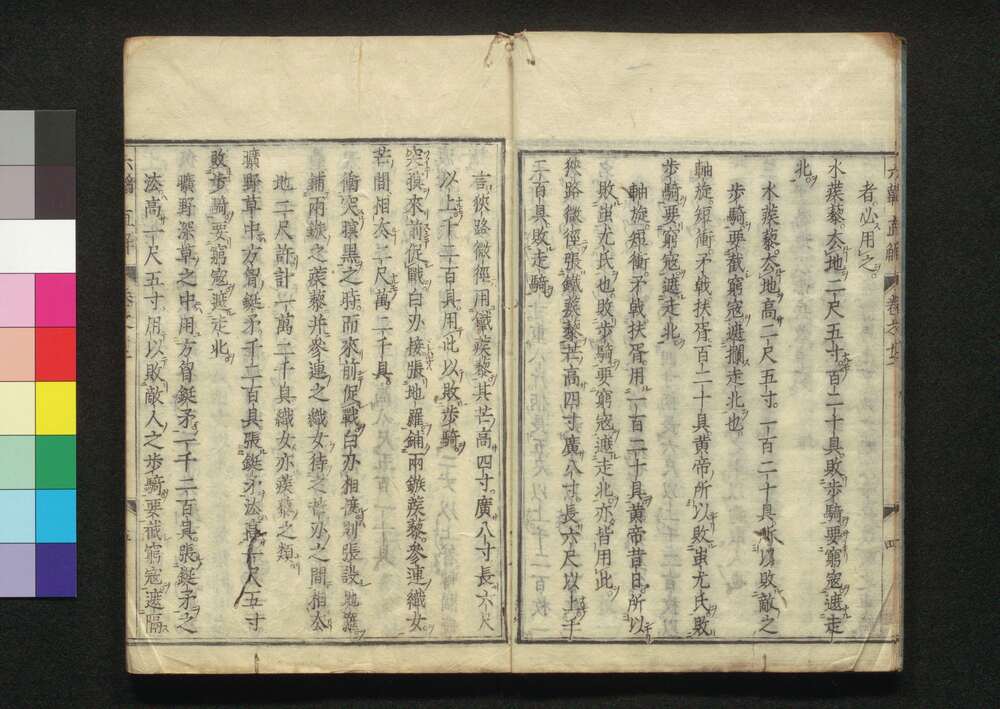 者必用之
木蒺藜去地二尺五寸百二十具敗步騎要窮寇遮走
北
木蒺藜去地高二尺五寸一百二十具所以敗敵之
步騎要截窮寇遮攔走北也
軸旋短衝矛戟扶胥百二十具黃帝所以敗蚩尤氏敗
步騎要窮寇遮走北
軸旋短衝矛戟扶胥用一百二十具黃帝昔日所以
敗蚩尤氏也敗步騎要窮寇遮走北亦皆用此
狹路微徑張鐵蒺藜芒高四寸廣八寸長六尺以上千
二百具敗走騎
言狹路微徑用鐵蒺藜其芒高四寸廣八寸長六尺
以上千二百具用此以敗步騎
突瞑來前促戰白刃接張地羅鋪兩鏃蒺藜參連織女
芒間相去二尺萬二千具
衝突瞑黑之時而來前促戰白刃相接則張設地羅
鋪兩鏃之蒺藜并參連之織女待之芒刃之間相去
地二尺許計一萬二千具織女亦蒺藜之類
曠野草中方胷鋋矛千二百具張鋋矛法高一尺五寸
敗步騎要窮寇遮走北
曠野深草之中用方胷鋋矛一千二百具張鋋矛之
法高一尺五寸用以敗敵人之步騎要截窮寇遮隔